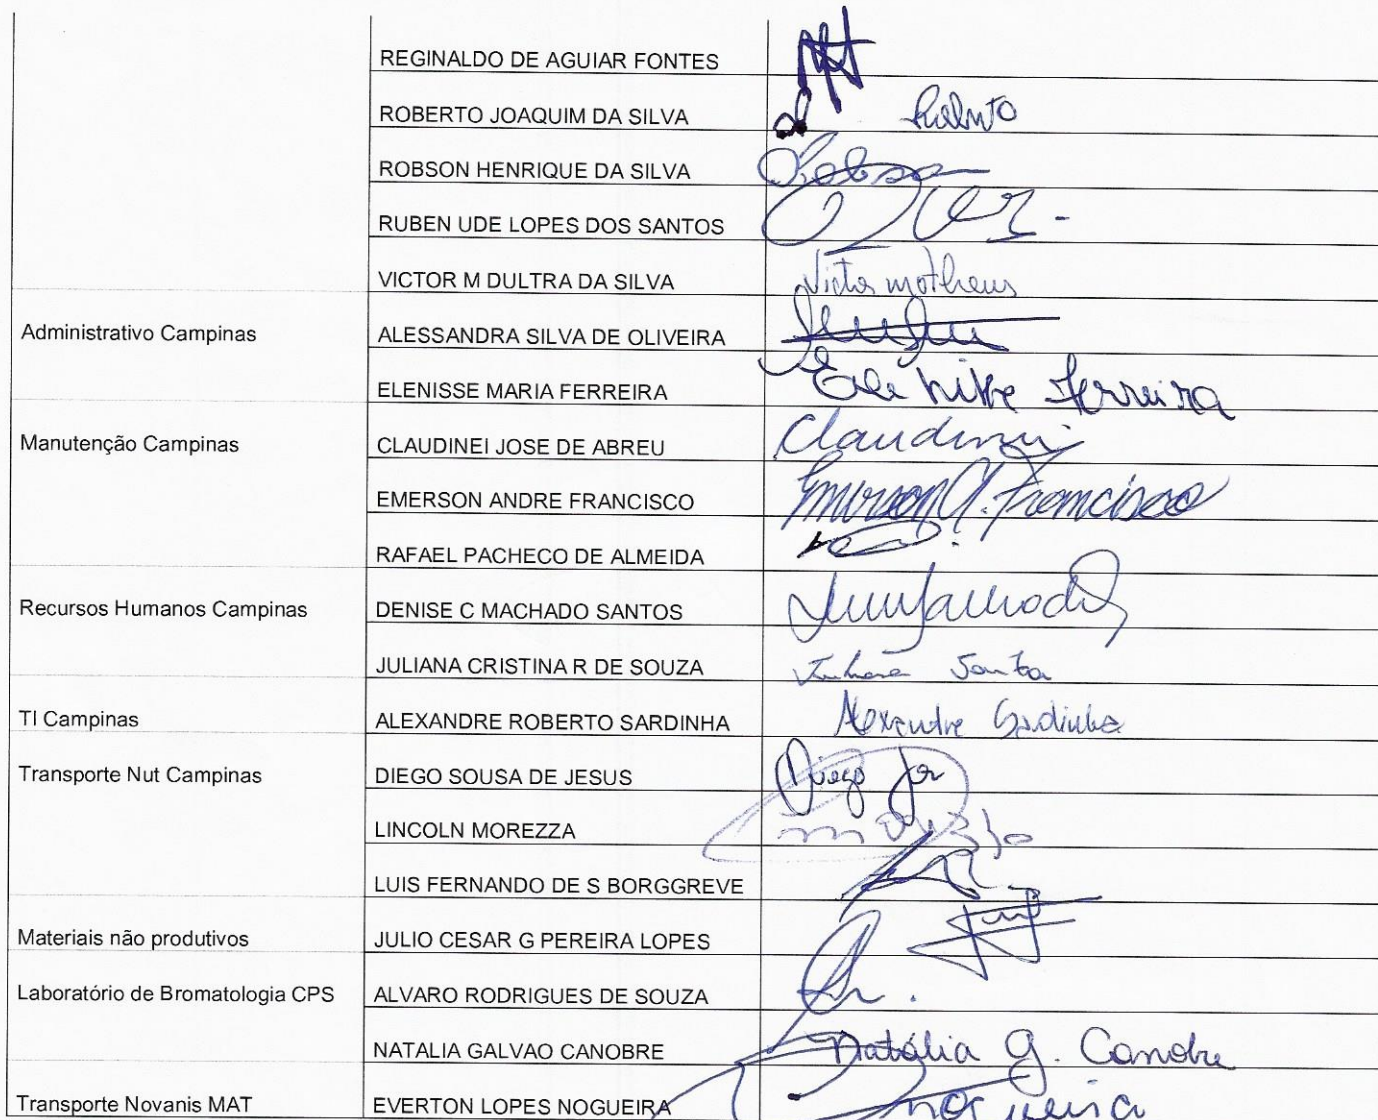 REGINALDO DE AGUIAR FONTES
ROBERTO JOAQUIM DA SILVA Roberto
ROBSON HENRIQUE DA SILVA Robson
RUBEN UDE LOPES DOS SANTOS
VICTOR M DULTRA DA SILVA Victor Matheus
Administrativo Campinas ALESSANDRA SILVA DE OLIVEIRA
ELENISSE MARIA FERREIRA Elenisse Ferreira
Manutenção Campinas CLAUDINEI JOSE DE ABREU Claudinei
EMERSON ANDRE FRANCISCO Emerson A. Francisco
RAFAEL PACHECO DE ALMEIDA
Recursos Humanos Campinas DENISE C MACHADO SANTOS
JULIANA CRISTINA R DE SOUZA
TI Campinas ALEXANDRE ROBERTO SARDINHA Alexandre Sardinha
Transporte Nut Campinas DIEGO SOUSA DE JESUS Diego
LINCOLN MOREZZA
LUIS FERNANDO DE S BORGGREVE
Materiais não produtivos JULIO CESAR G PEREIRA LOPES
Laboratório de Bromatologia CPS ALVARO RODRIGUES DE SOUZA
NATALIA GALVAO CANOBRE Natália G. Canobre
Transporte Novanis MAT EVERTON LOPES NOGUEIRA Nogueira